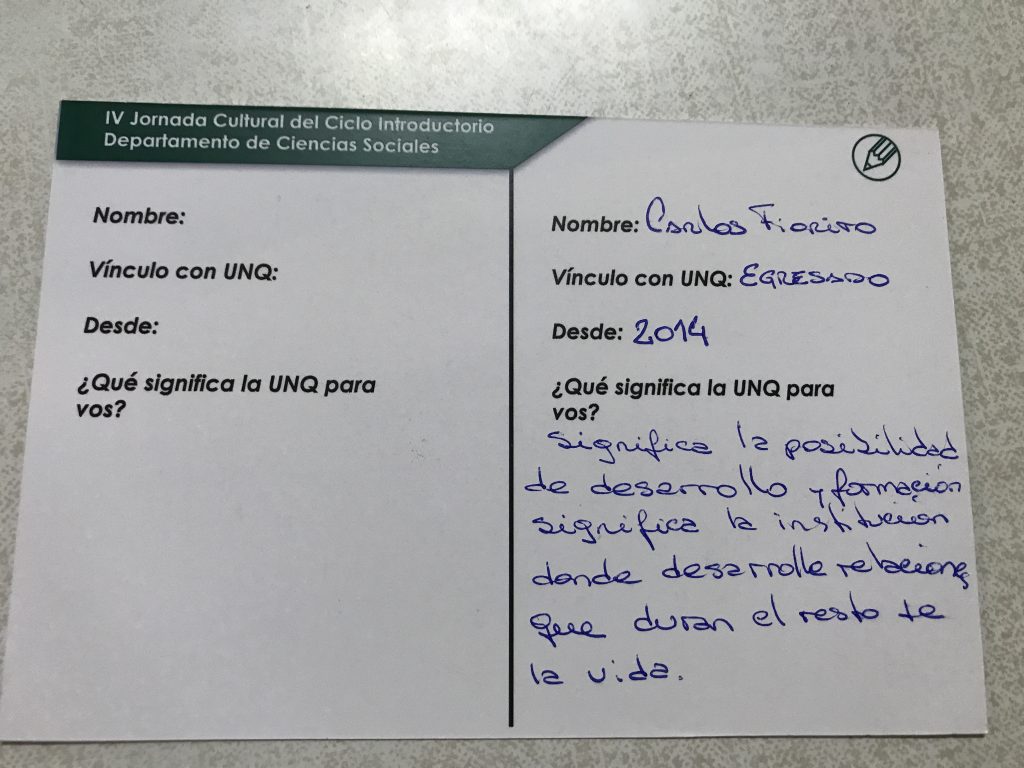 IV Jornada Cultural del Ciclo Introductorio
Departamento de Ciencias Sociales
Nombre:
Vínculo con UNQ:
Desde:
¿Qué significa la UNQ para
vos?
Nombre: Carlos Fiorito
Vínculo con UNQ: EGRESADO
Desde: 2014
¿Qué significa la UNQ para
vos?
significa la posibilidad
de desarrollo y formación
significa la institución
donde desarrolle relaciones
que duran el resto te
la vida.